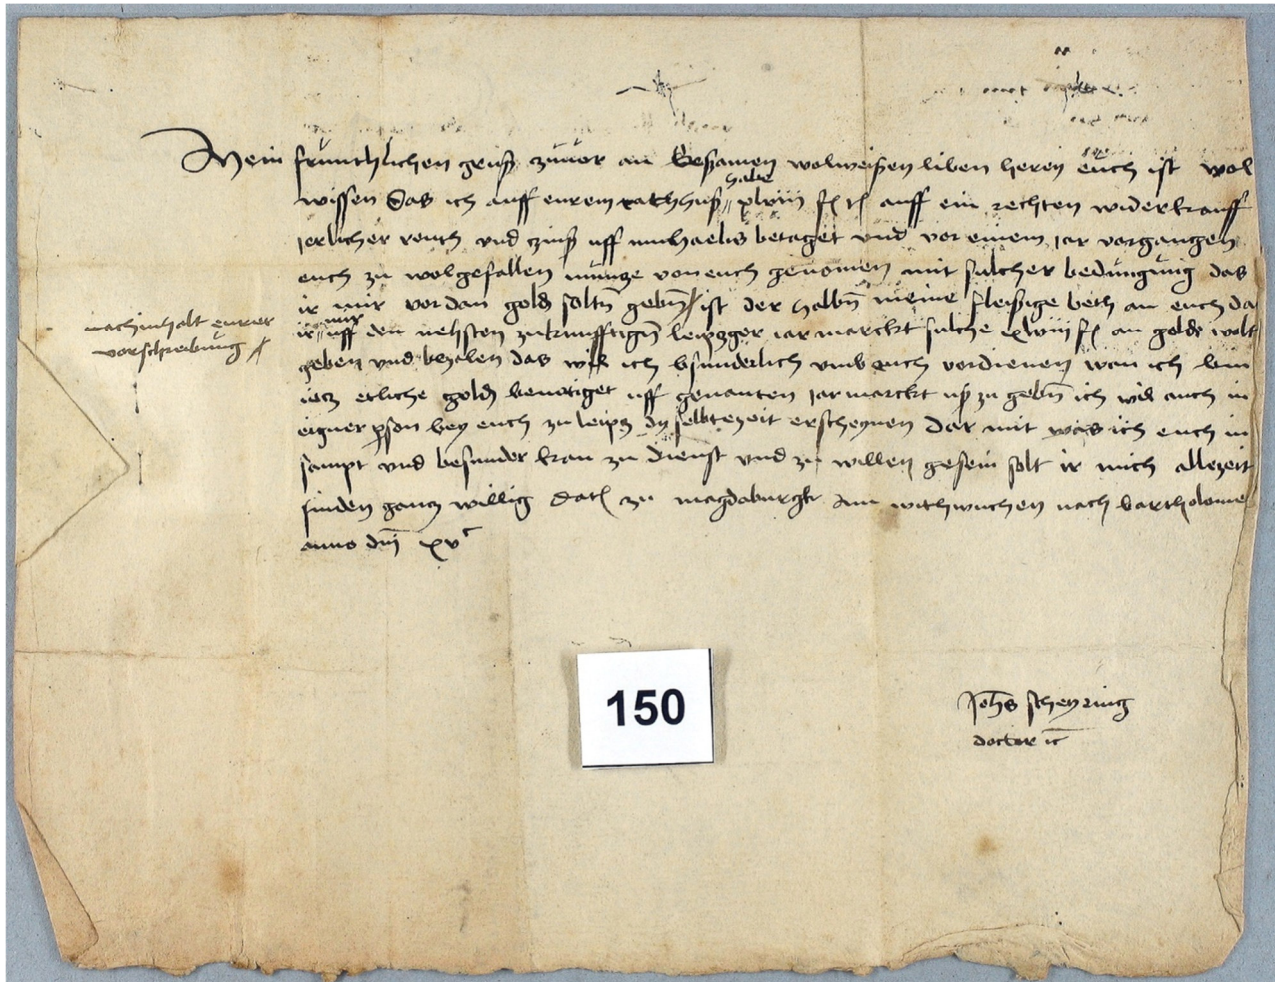 Mein fruntlichen grus zuuor an Ersamen wolweisen liben heren euch ist wol
habe
wissen das ich auff eurem rathhus xlviii fl auff ein rechten widerkauff
jerlicher renth vnd czinss uff michaelis betaget vnd vor einem jar vorgangen
euch zu wolgefallen muntze von euch genomen mit sulcher bedingung das
ir mir vordan gold soltn gebn ist der halbn meine fleissige beth an euch da
nach inhalt eurer
vorschreibung
mir
ir uff den nehsten zukunfftign leipzger iarmarckt sulche xlviii fl an golde wolt
geben vnd bezalen das wil ich bsunderlich vmb euch vordienen wan ich bin
iecz etliche gold benotiget uff genanten jarmarckt us zu gebn ich wil auch in
eigner person bey euch zu leipzg dy selbte zeit erscheynen dar mit was ich euch in
sampt vnd besunder kan zu dienst vnd zu willen gesein solt ir mich allezeit
finden gancz willig dat zu magdaburgk am mithwuchen nach bartholomei
anno dni xvc
150
Johs scheyring
doctor